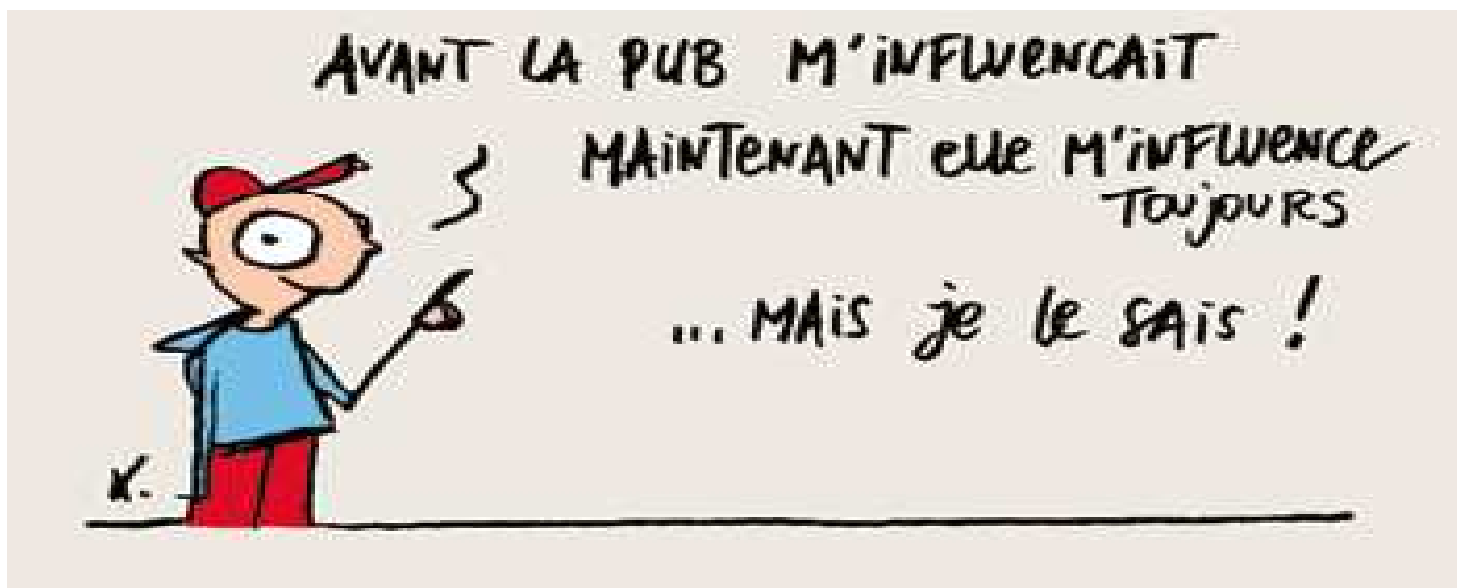 AVANT LA PUB M'INFLUENCAIT
MAINTENANT elle M'INFLUENCE
TOUJOURS
... MAIS je le SAIS !
K.